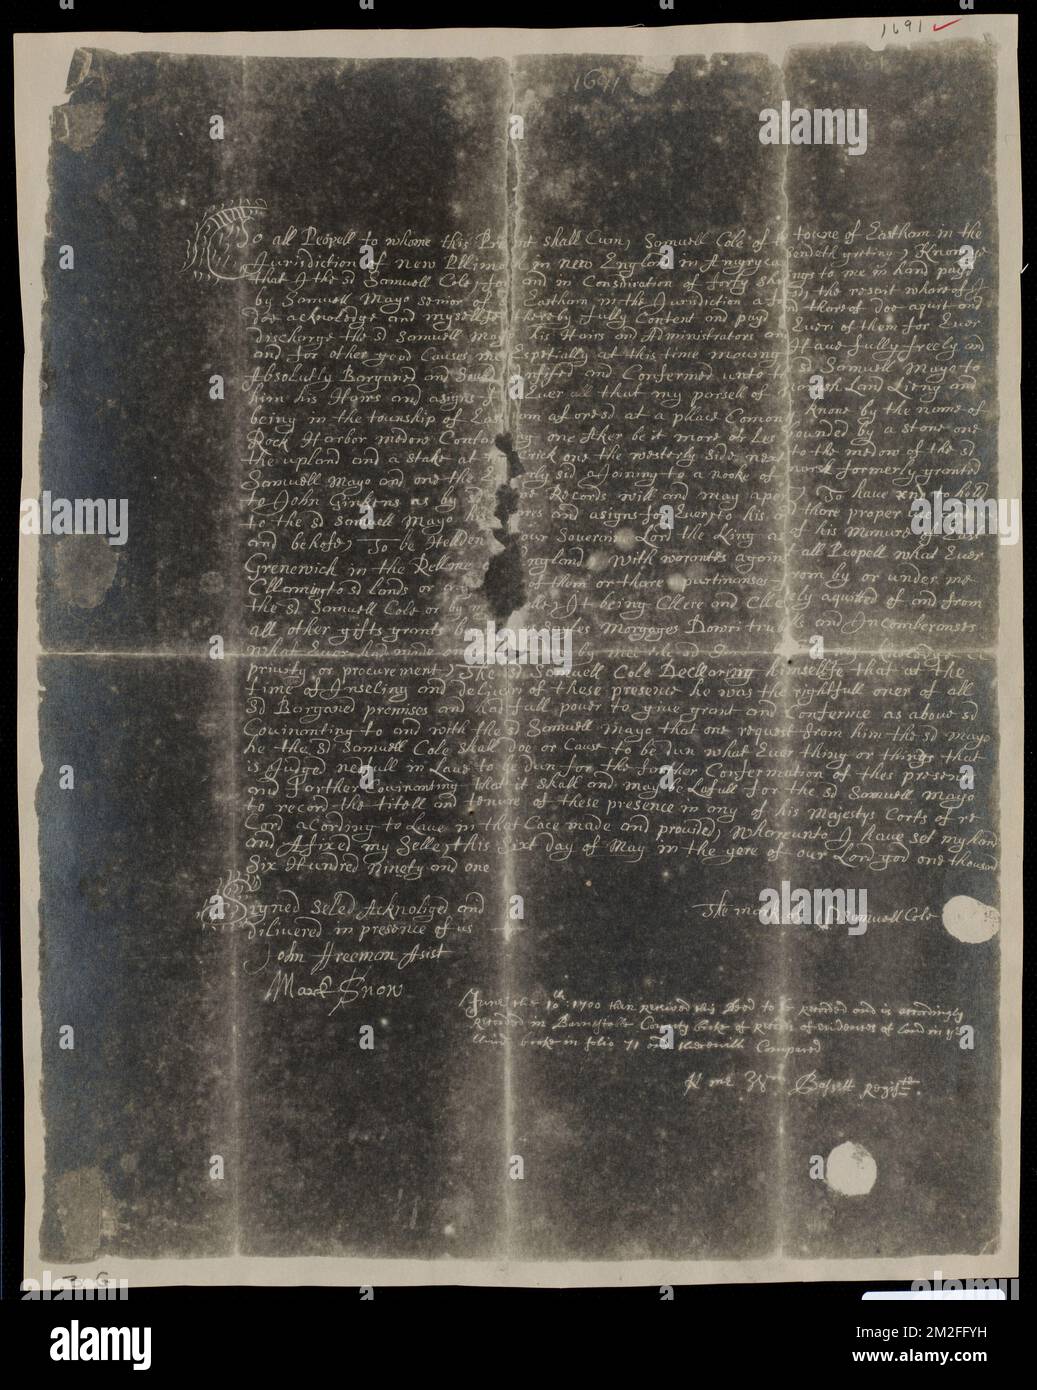 1691
1691
To all Peopell to whome this Pr nt shall Cum, Samuell Cole of t towne of Eastham in the
Jurridiction of new Plimo in new England in Amyryca sendeth griting, Know ye
that I the sd Samuell Cole, for and in Considiration of forty sh ings to me in hand payd
by Samuell Mayo senior of Eastham in the Jurisdiction a the resait whare of I
doe acknolidge and myselfe thereby fully Content and payd and thare of doe aquit and
discharge the sd Samuell May his Hairs and Administrators an Everi of them for Ever
and for other good Causes me Espetially at this time moving Have fully freely and
Absolutly Bargand and Sould Enfeffed and Confermed unto t sd Samuell Mayo to
him his Hairs and asigns f Ever all that my parsell of marsh Land Liing and
being in the township of East m afore sd at a place Comonly Knone by the name of
Rock Harbor medow Conta ing one Aker be it more or Les bounded by a stone one
the upland and a stake at t Crick one the westerly side next to the medow of the sd
Samuell Mayo and one the E ly sid ajoining to a nooke of marsh formerly granted
to John Jinkens as by Records will and may apere, To have and to hold
to the sd Samuell Mayo his ares and asigns for Ever, to his and thare proper
and behofe, To be Hellden our Soveraine Lord the King as of his Manure of East
Grenewich in the Rellme of England with warantes against all Peopell what Ever
Cllaiming to sd lands or any of them or thare apurtinanses from by or under me
the sd Samuell Cole or by m , It being Cllere and Cllerely aquited of and from
all other gifts grants b Morgages Dowri trubls and Incomberanses
what Ever had made by mee
privity or procurement, The sd Samuell Cole Decllearing himsellfe that at the
time of Inseling and delivery of these presence he was the rightfull oner of all
sd Bargand premises and had full power to give grant and Conferme as above sd
Covinanting to and with the sd Samuell Mayo that one request from him the sd Mayo
he the sd Samuell Cole shall doe or Cause to be dun what Ever thing or things that
is Judged nedfull in Law to be dun for the further Confermation of thes presence
and farther Covinanting that it shall and may be Lafull for the sd Samuell Mayo
to record the titell and tenure of these presence in any of his Majestys Corts of re
Cord acording to Law in that Case made and provided, Whareunto I have set my hand
and Afixed my Selle, this sixt day of May in the yere of our Lord god one thousand
Six Hundred Ninety and one
Signed Seled Acknoliged and
dilivered in presence of us
The mark of Samuell Cole
John Freeman Asist
Mark Snow
June the 10th: 1700 then received this deed to be recorded and is accordingly
recorded in Barnestable County booke of records of evidences of land in ye
third booke in folio 71 and therewith Compared
me Wm Bassett Registr.
B G
alamy
a
alamy
Image ID: 2M2FFYH
www.alamy.com